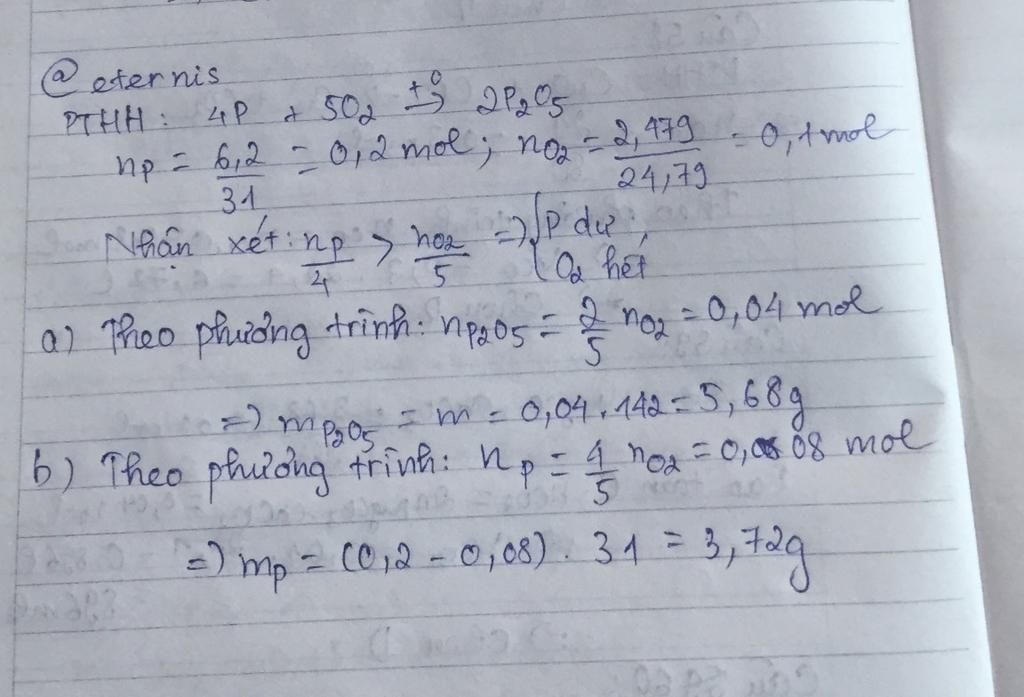 @ eternis
PTHH: 4P + 5O2 t°→ 2P2O5
nP = 6,2/31 = 0,2 mol; nO2 = 2,479/24,79 = 0,1 mol
Nhận xét: nP/4 > nO2/5 => { P dư, O2 hết
a) Theo phương trình: nP2O5 = 2/5 nO2 = 0,04 mol
=> mP2O5 = m = 0,04.142 = 5,68g
b) Theo phương trình: nP = 4/5 nO2 = 0,08 mol
=> mP = (0,2 - 0,08). 31 = 3,72g